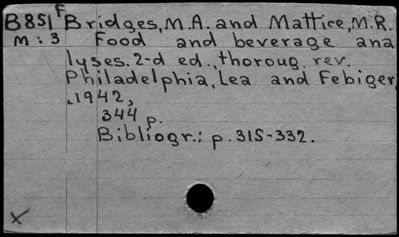 B851 F Bridges, M.A. and Mattice, M.R.
M:3 Food and beverage ana
lyses. 2-d ed., thoroug. rev.
Philadelphia, Lea and Febiger,
,1942,
344 p.
Bibliogr.: p.315-332.
X